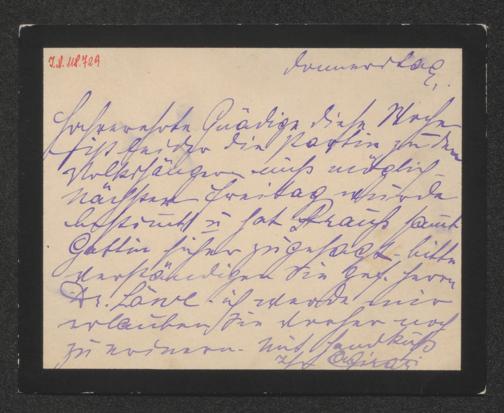 I.N. 118.729
Donnerstag.
Hochverehrte Gnädige, diese Woche
ist leider die Partie zu den
Volkssängern nicht möglich
Nächster Freitag wurde
bestimmt u hat Strauss sammt
Gattin sicher zugesagt, bitte
verständigen Sie gef. Herrn
Dr. Löwe. ich werde mir
erlauben Sie vorher noch
zu erinnern. Mit Handkuß